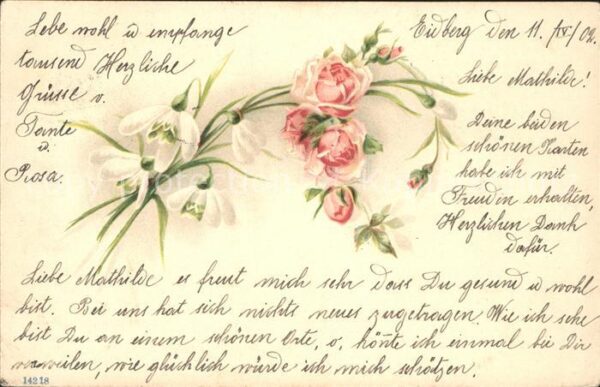 Eidberg den 11. IV/02.
Liebe Mathilde!
Deine beiden
schönen Karten
habe ich mit
Freuden erhalten,
Herzlichen Dank
dafür.
Liebe Mathilde es freut mich sehr dass Du gesund u wohl
bist. Bei uns hat sich nichts neues zugetragen. Wie ich sehe
bist Du an einem schönen Orte, o, könte ich einmal bei Dir
verweilen, wie glücklich würde ich mich schötzen.
Lebe wohl u empfange
tausend Herzliche
Grüsse v.
Tante
u.
Rosa.
14218